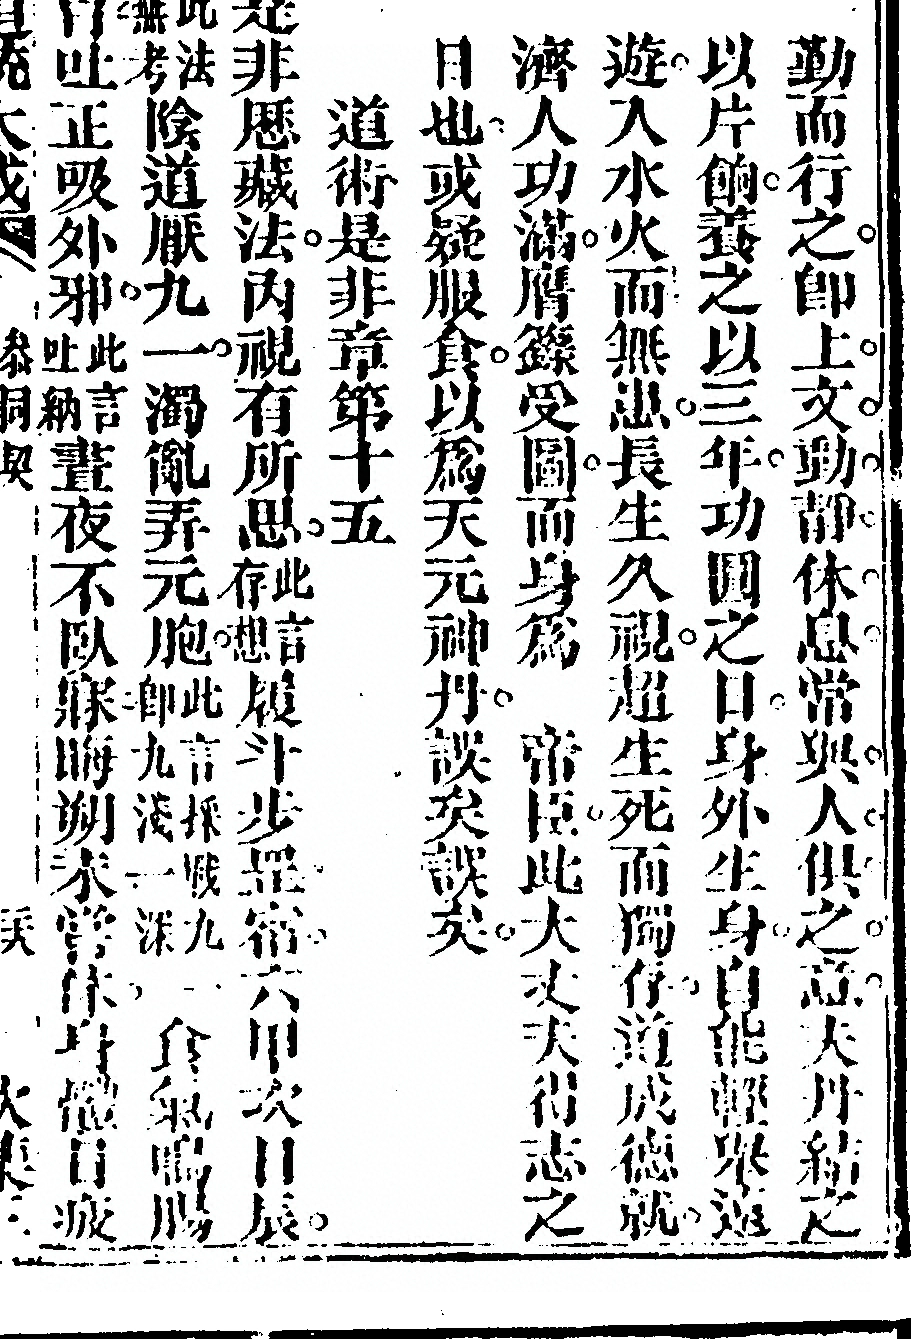 勤而行之即上文動靜休息常與人俱之意夫丹結之
以片餉養之以三年功圓之日身外生身自能輕舉遠
遊入水火而無患長生久視超生死而獨存道成德就
濟人功滿膺籙受圖而身為　帝臣此大丈夫得志之
日也或疑服食以為天元神丹誤矣誤矣
道術是非章第十五
是非歷藏法內視有所思此言存想履斗步罡宿六甲次日辰
此法無考陰道厭九一濁亂弄元胞此言採戰九即九淺一深食氣鳴腸
胃吐正吸外邪此言吐納晝夜不臥寐晦朔未嘗休身體日疲